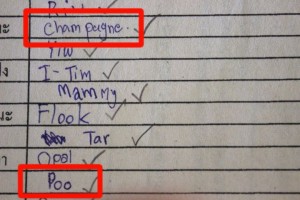 Champagne.
Yiw
I-Tim
Mammy
Flook
Tar
Opal
Poo